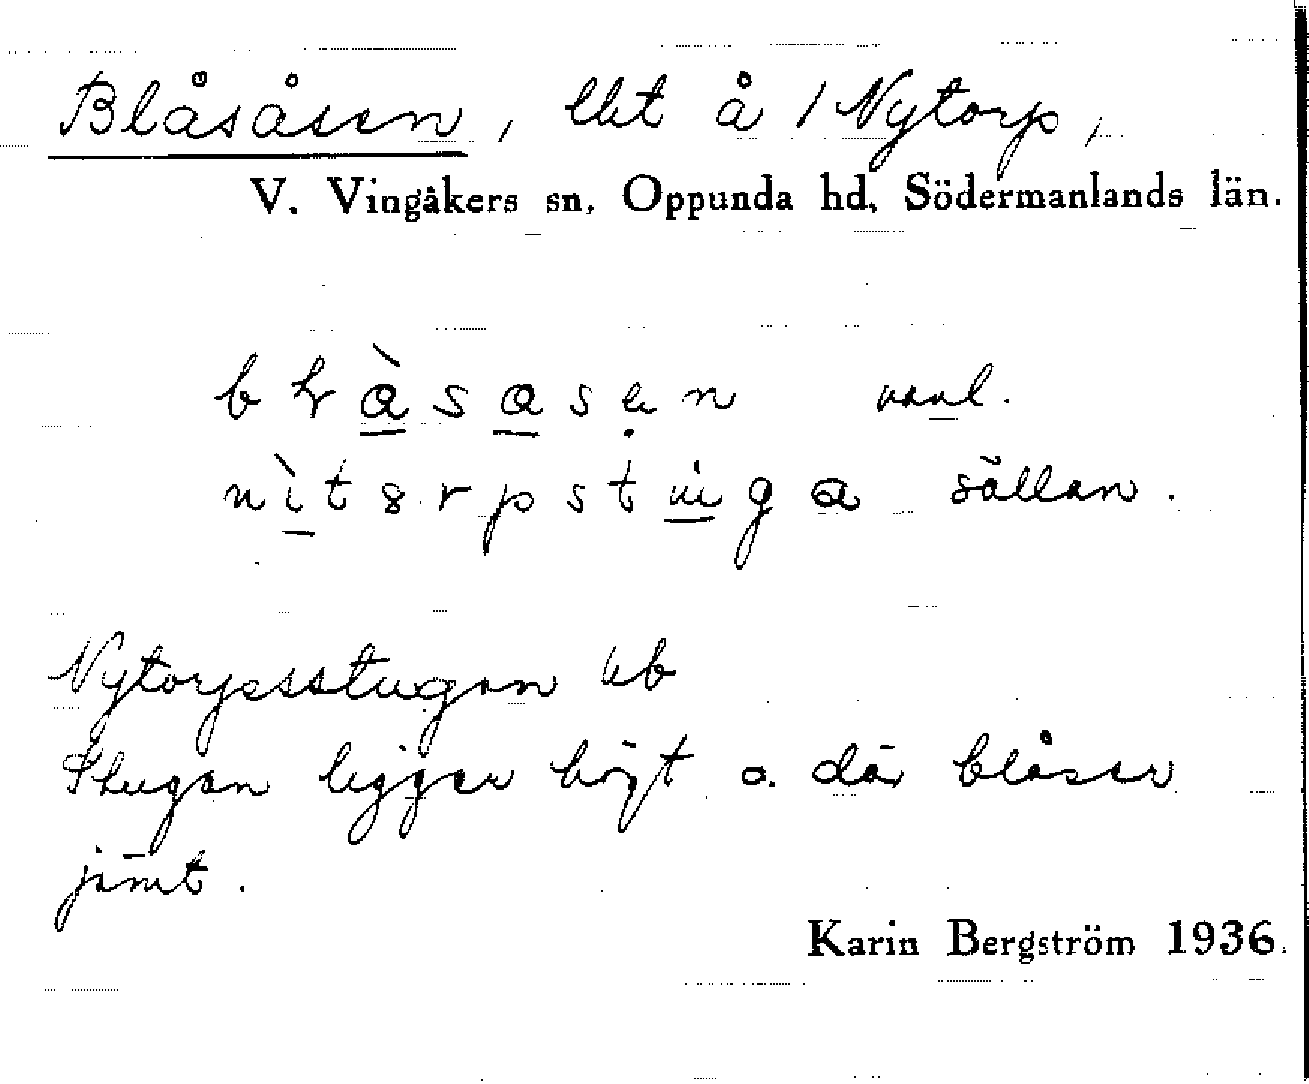 Blåsåsen, lht å 1 Nytorp,
V. Vingåkers sn, Oppunda hd, Södermanlands län.
vanl.
sällan.
Nytorpsstugan ub
Stugan ligger högt o. där blåser
jämt.
Karin Bergström 1936.